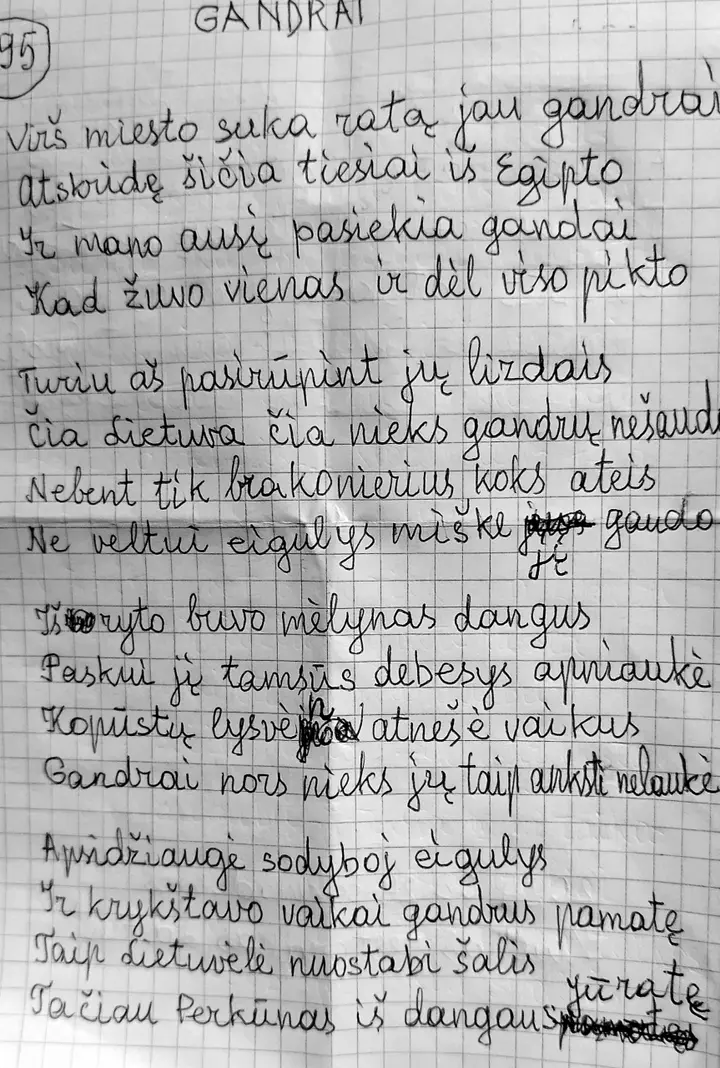 GANDRAI
95
Virš miesto suka ratą jau gandrai
Atskridę šičia tiesiai iš Egipto
Ir mano ausį pasiekia gandai
Kad žuvo vienas ir dėl viso pikto
Turiu aš pasirūpint jų lizdais
Čia Lietuva čia nieks gandrų nešaudo
Nebent tik brakonierius koks ateis
Ne veltui eigulys miške jį gaudo
Iš ryto buvo mėlynas dangus
Paskui jį tamsūs debesys apniaukė
Kopūstų lysvėjn atnešė vaikus
Gandrai nors nieks jų taip anksti nelaukė
Apsidžiaugė sodyboj eigulys
Ir krykštavo vaikai gandrus pamatę
Taip Lietuvėlė nuostabi šalis
Tačiau Perkūnas iš dangaus jūratę